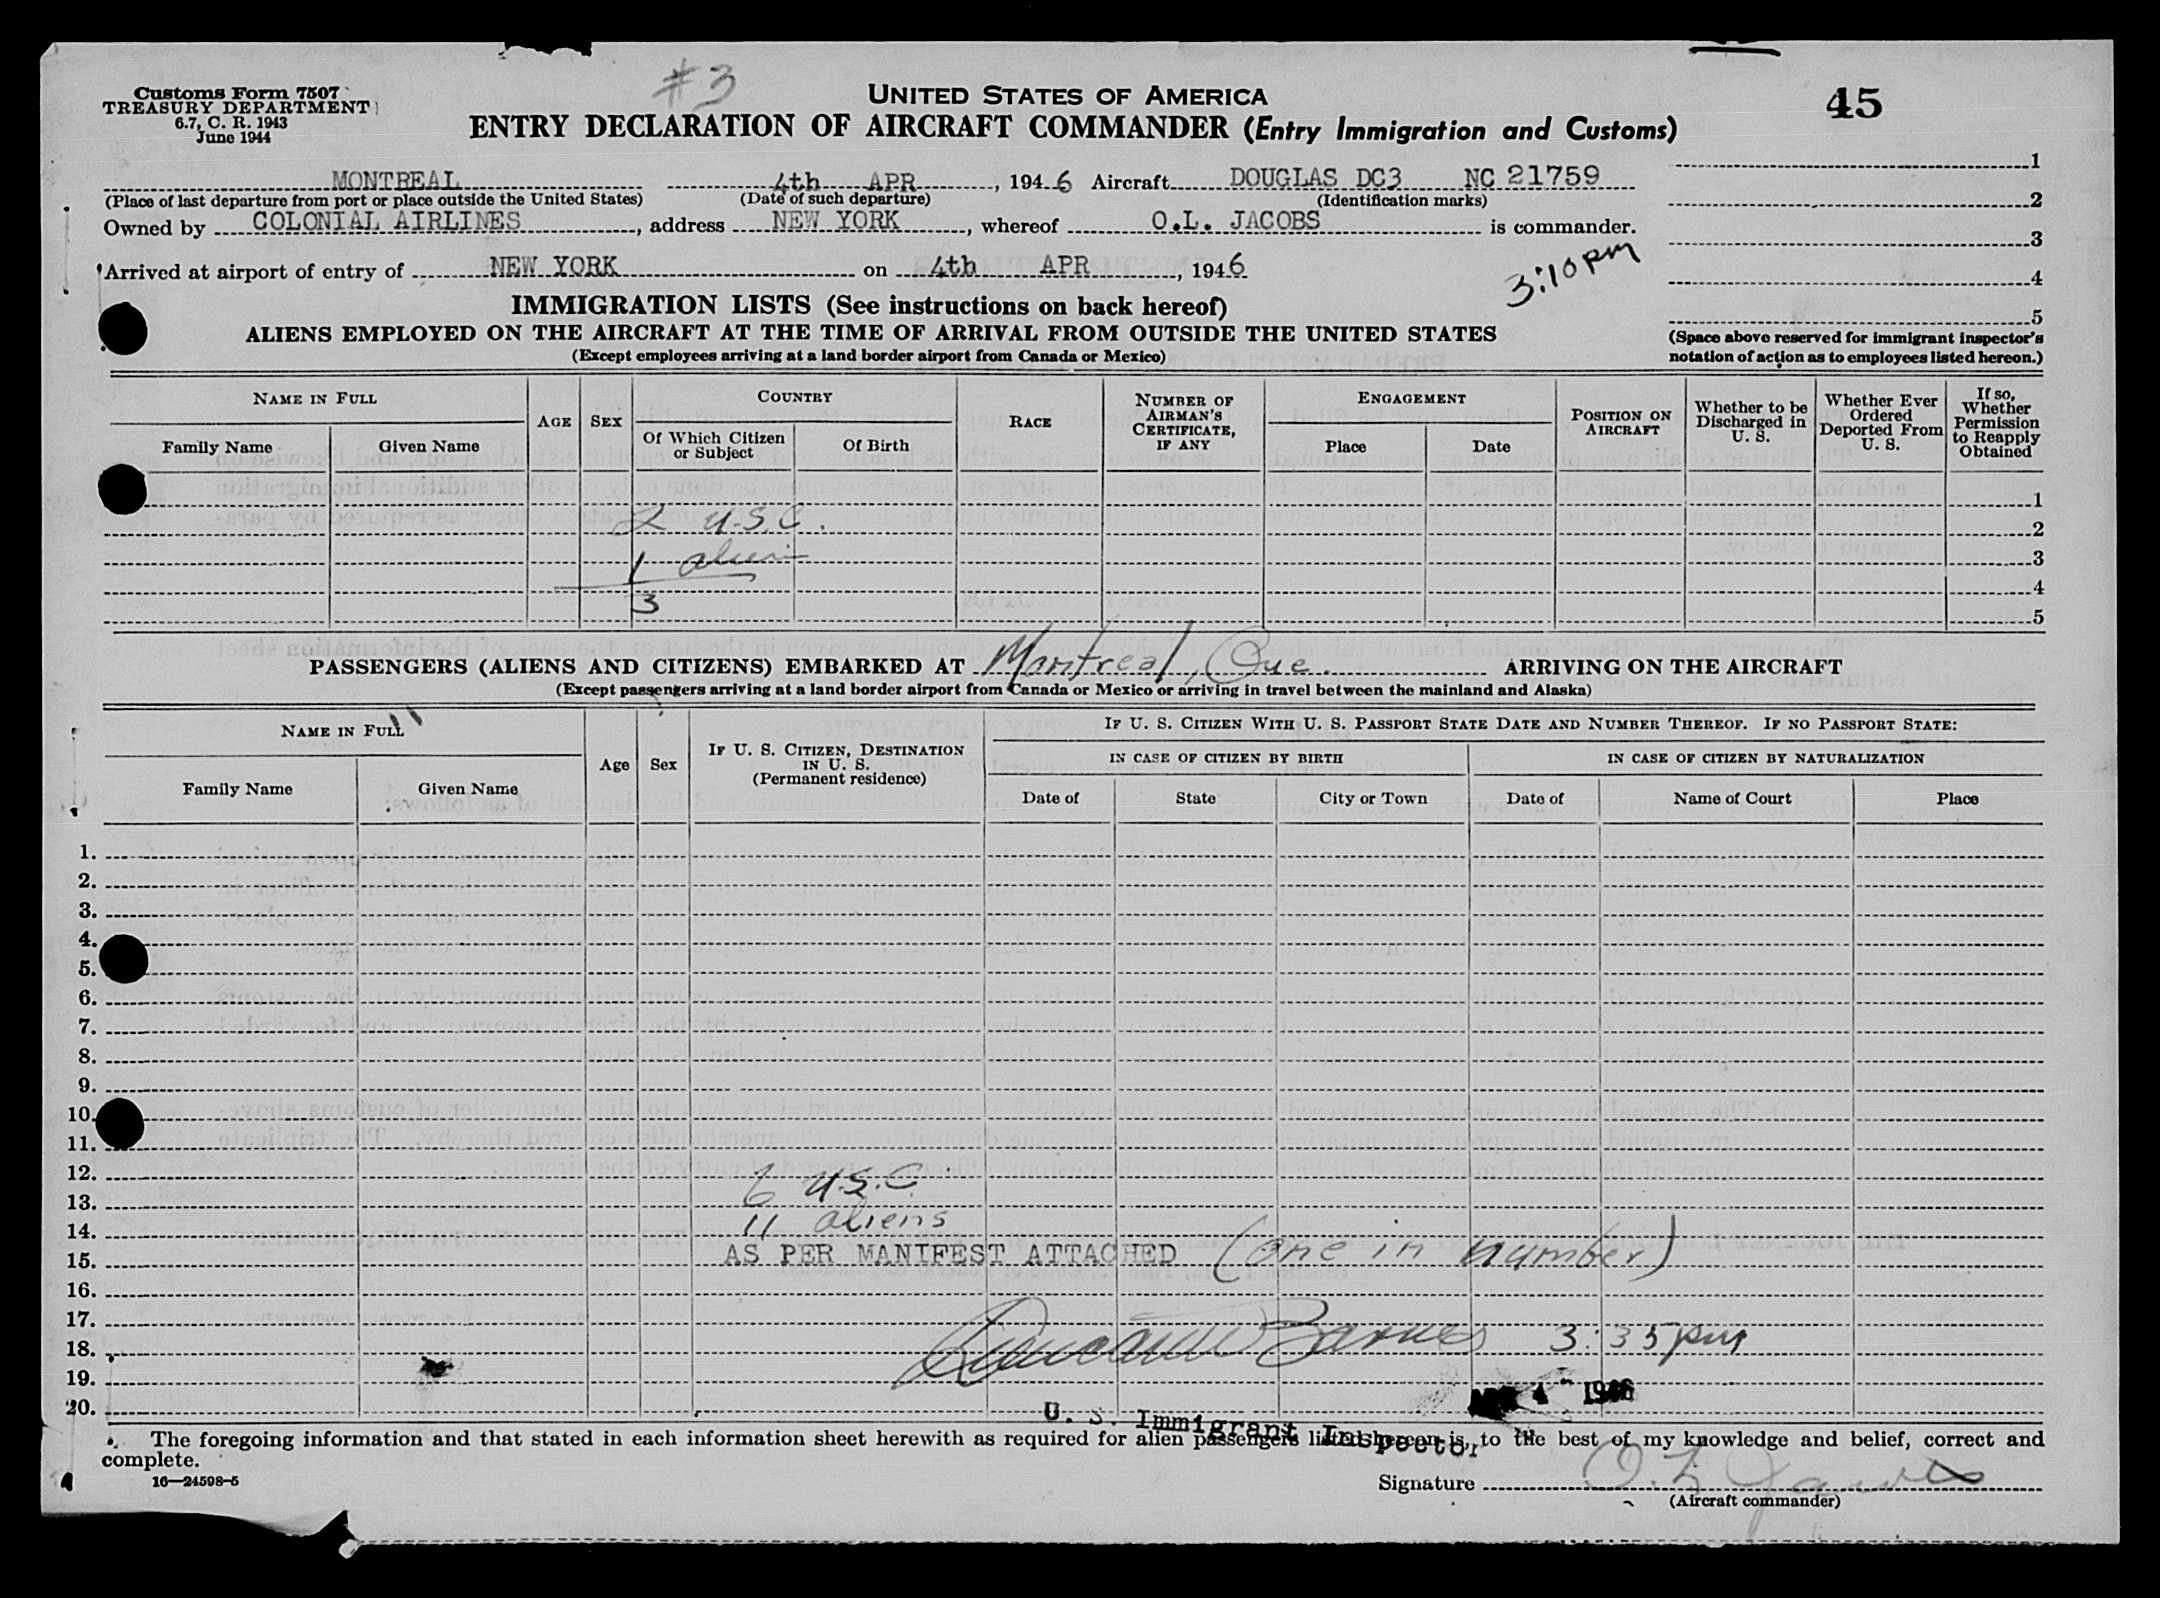 #3
Customs Form 7507
TREASURY DEPARTMENT
6.7, C. R. 1943
June 1944
UNITED STATES OF AMERICA
ENTRY DECLARATION OF AIRCRAFT COMMANDER (Entry Immigration and Customs)
45
MONTREAL 4th APR, 1946 Aircraft DOUGLAS DC3 NC 21759
(Place of last departure from port or place outside the United States) (Date of such departure) (Identification marks)
Owned by COLONIAL AIRLINES, address NEW YORK, whereof O.L. JACOBS is commander.
Arrived at airport of entry of NEW YORK on 4th APR, 1946
3:10 PM
1
2
3
4
5
(Space above reserved for immigrant inspector's
notation of action as to employees listed hereon.)
IMMIGRATION LISTS (See instructions on back hereof)
ALIENS EMPLOYED ON THE AIRCRAFT AT THE TIME OF ARRIVAL FROM OUTSIDE THE UNITED STATES
(Except employees arriving at a land border airport from Canada or Mexico)
NAME IN FULL
Family Name Given Name
AGE
SEX
COUNTRY
Of Which Citizen or Subject
Of Birth
RACE
NUMBER OF AIRMAN'S CERTIFICATE, IF ANY
ENGAGEMENT
Place Date
POSITION ON AIRCRAFT
Whether to be Discharged in U. S.
Whether Ever Ordered Deported From U. S.
If so, Whether Permission to Reapply Obtained
1
2 U.S.C. 2
1 alien 3
4
3 5
PASSENGERS (ALIENS AND CITIZENS) EMBARKED AT Montreal, Que. ARRIVING ON THE AIRCRAFT
(Except passengers arriving at a land border airport from Canada or Mexico or arriving in travel between the mainland and Alaska)
NAME IN FULL 11
Family Name Given Name
Age
Sex
IF U. S. CITIZEN, DESTINATION IN U. S.
(Permanent residence)
IF U. S. CITIZEN WITH U. S. PASSPORT STATE DATE AND NUMBER THEREOF. IF NO PASSPORT STATE:
IN CASE OF CITIZEN BY BIRTH IN CASE OF CITIZEN BY NATURALIZATION
Date of State City or Town Date of Name of Court Place
1.
2.
3.
4.
5.
6.
7.
8.
9.
10.
11.
12.
13. 6 U.S.C.
14. 11 aliens
15. AS PER MANIFEST ATTACHED (one in number)
16.
17.
18. Barnes 3:35 pm
19.
20. 4 - 1946
U. S. Immigrant Inspector
The foregoing information and that stated in each information sheet herewith as required for alien passengers listed hereon is, to the best of my knowledge and belief, correct and
complete.
16—24598-5
Signature O. L. Jacobs
(Aircraft commander)